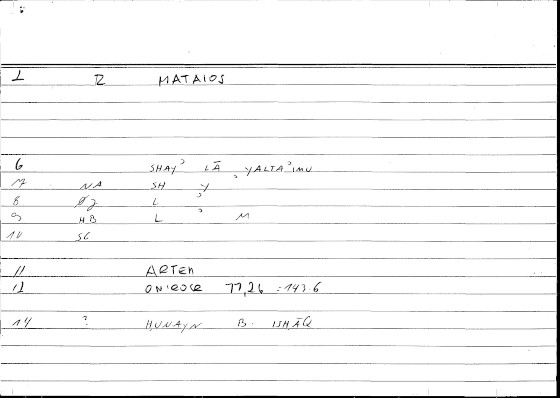 1 R MATAIOS
6 SHAYʾ LĀ YALTAʾIMU
7 NA SH Y ʾ
8 ØJ L ʾ
9 HB L ʾ M
10 SG
11 ARTEM
12 ONIROCR 77,26 :143.6
14 ? ḤUNAYN B. ISḤĀQ